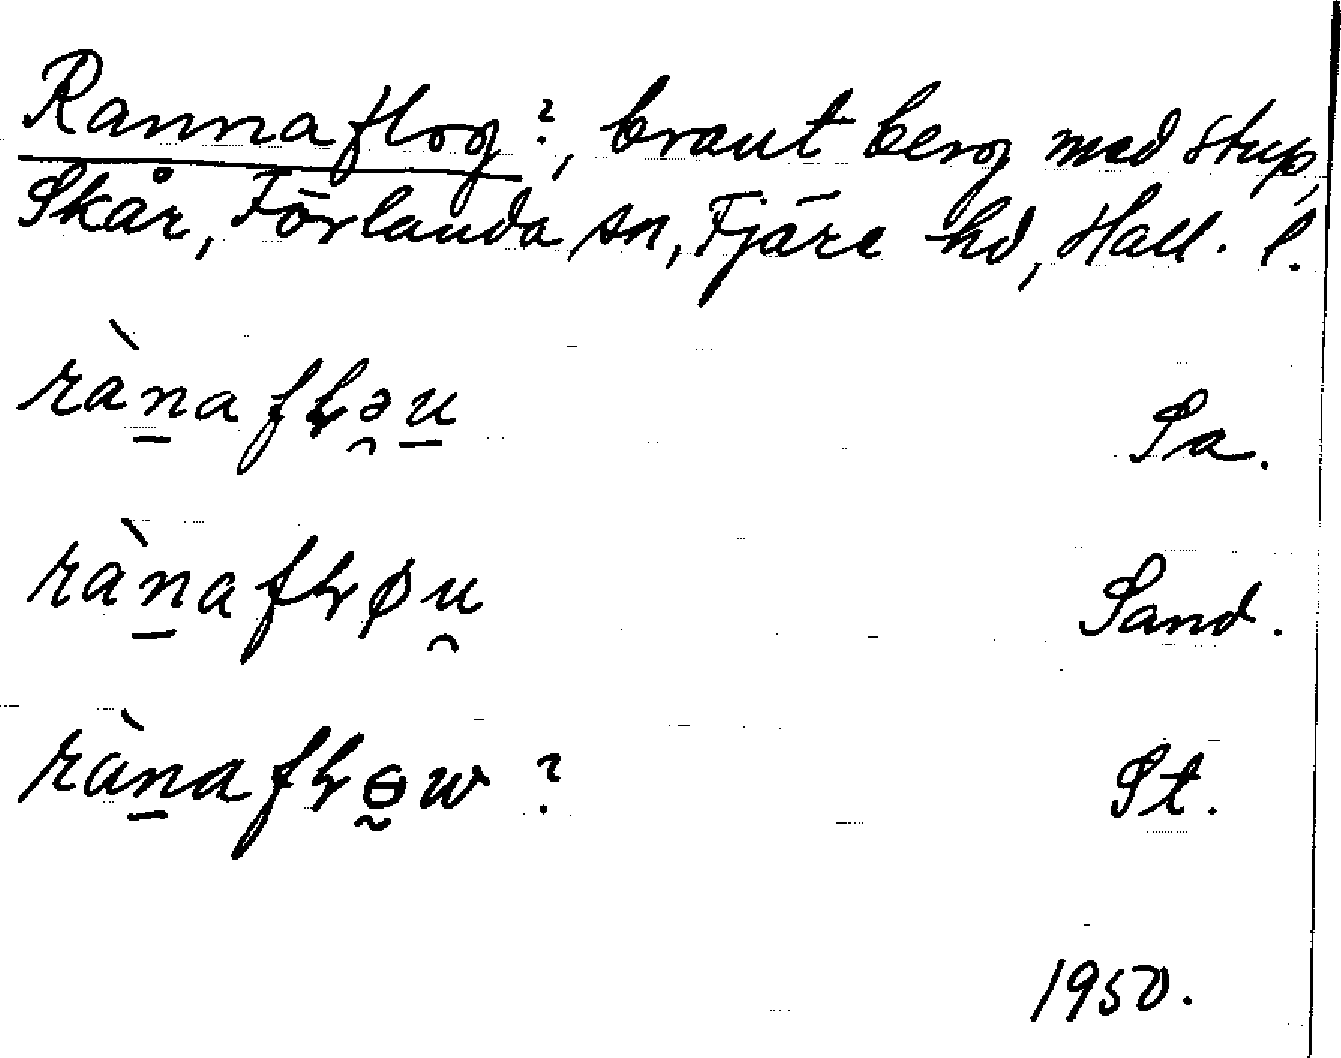 Rannaflog?, brant berg med stup,
Skår, Förlanda sn, Fjäre hd, Hall. l.
rànaflə̯u Sa.
rànafløu̯ Sand.
rànaflɵ̰w ? St.
1950.